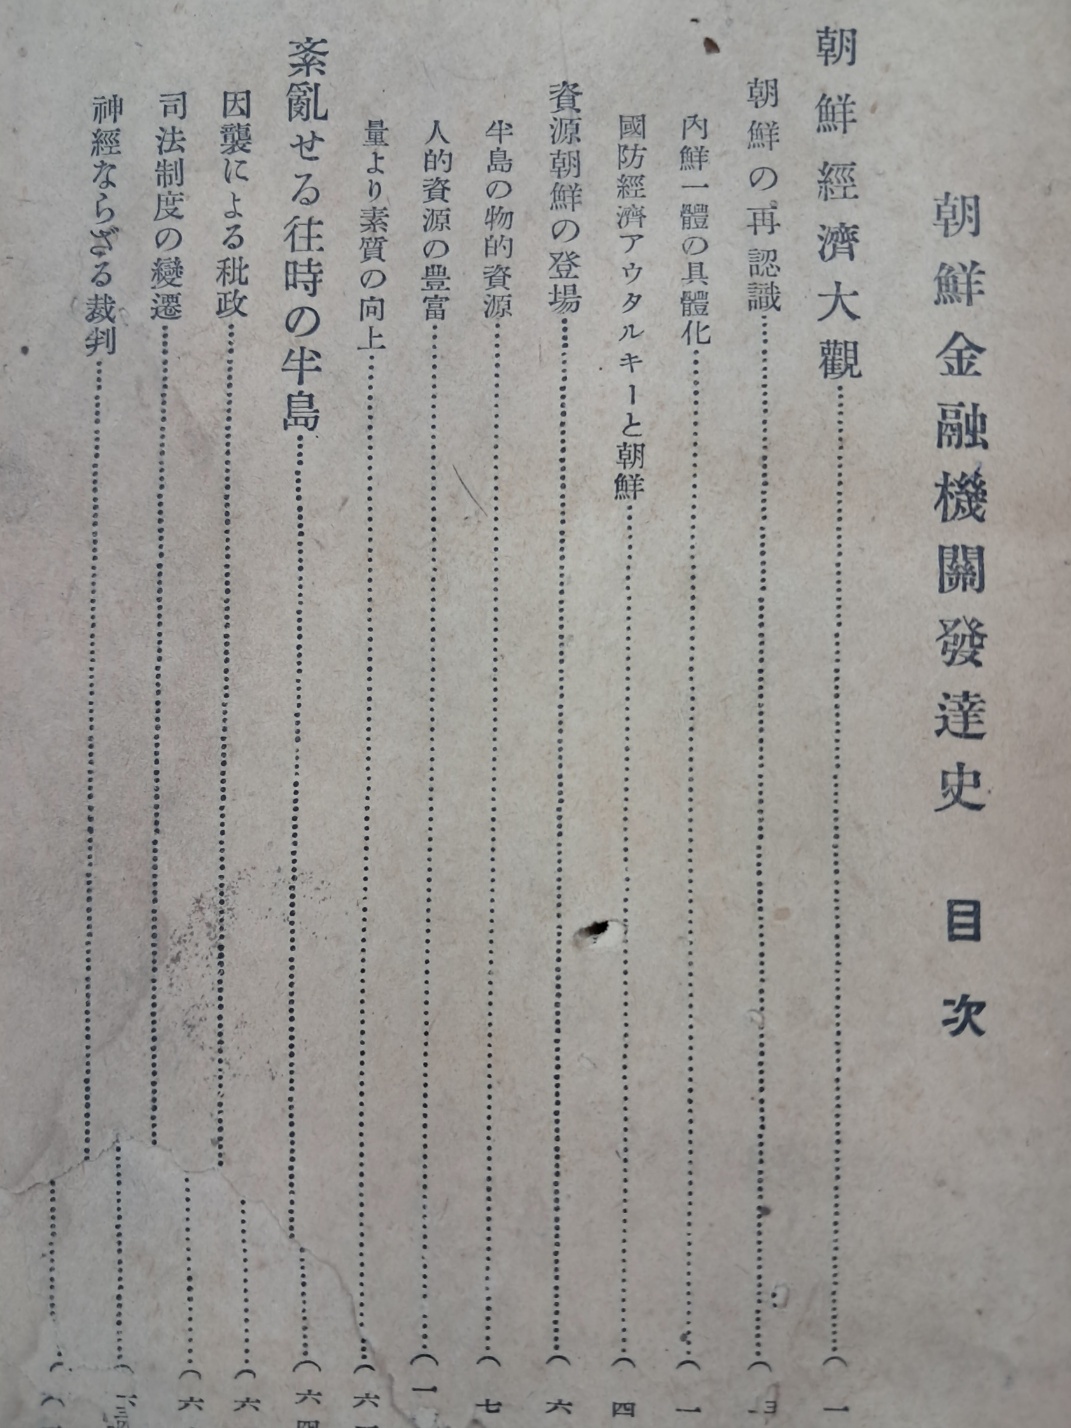 朝鮮金融機關發達史 目次
朝鮮經濟大觀………(一
朝鮮の再認識………(
內鮮一體の具體化………(一
國防經濟アウタルキーと朝鮮………(四
資源朝鮮の登場………(六
半島の物的資源………(七
人的資源の豊富………(一
量より素質の向上………(六
紊亂せる往時の半島………(六四
因襲による秕政………(六
司法制度の變遷………(六
神經ならざる裁判………(六